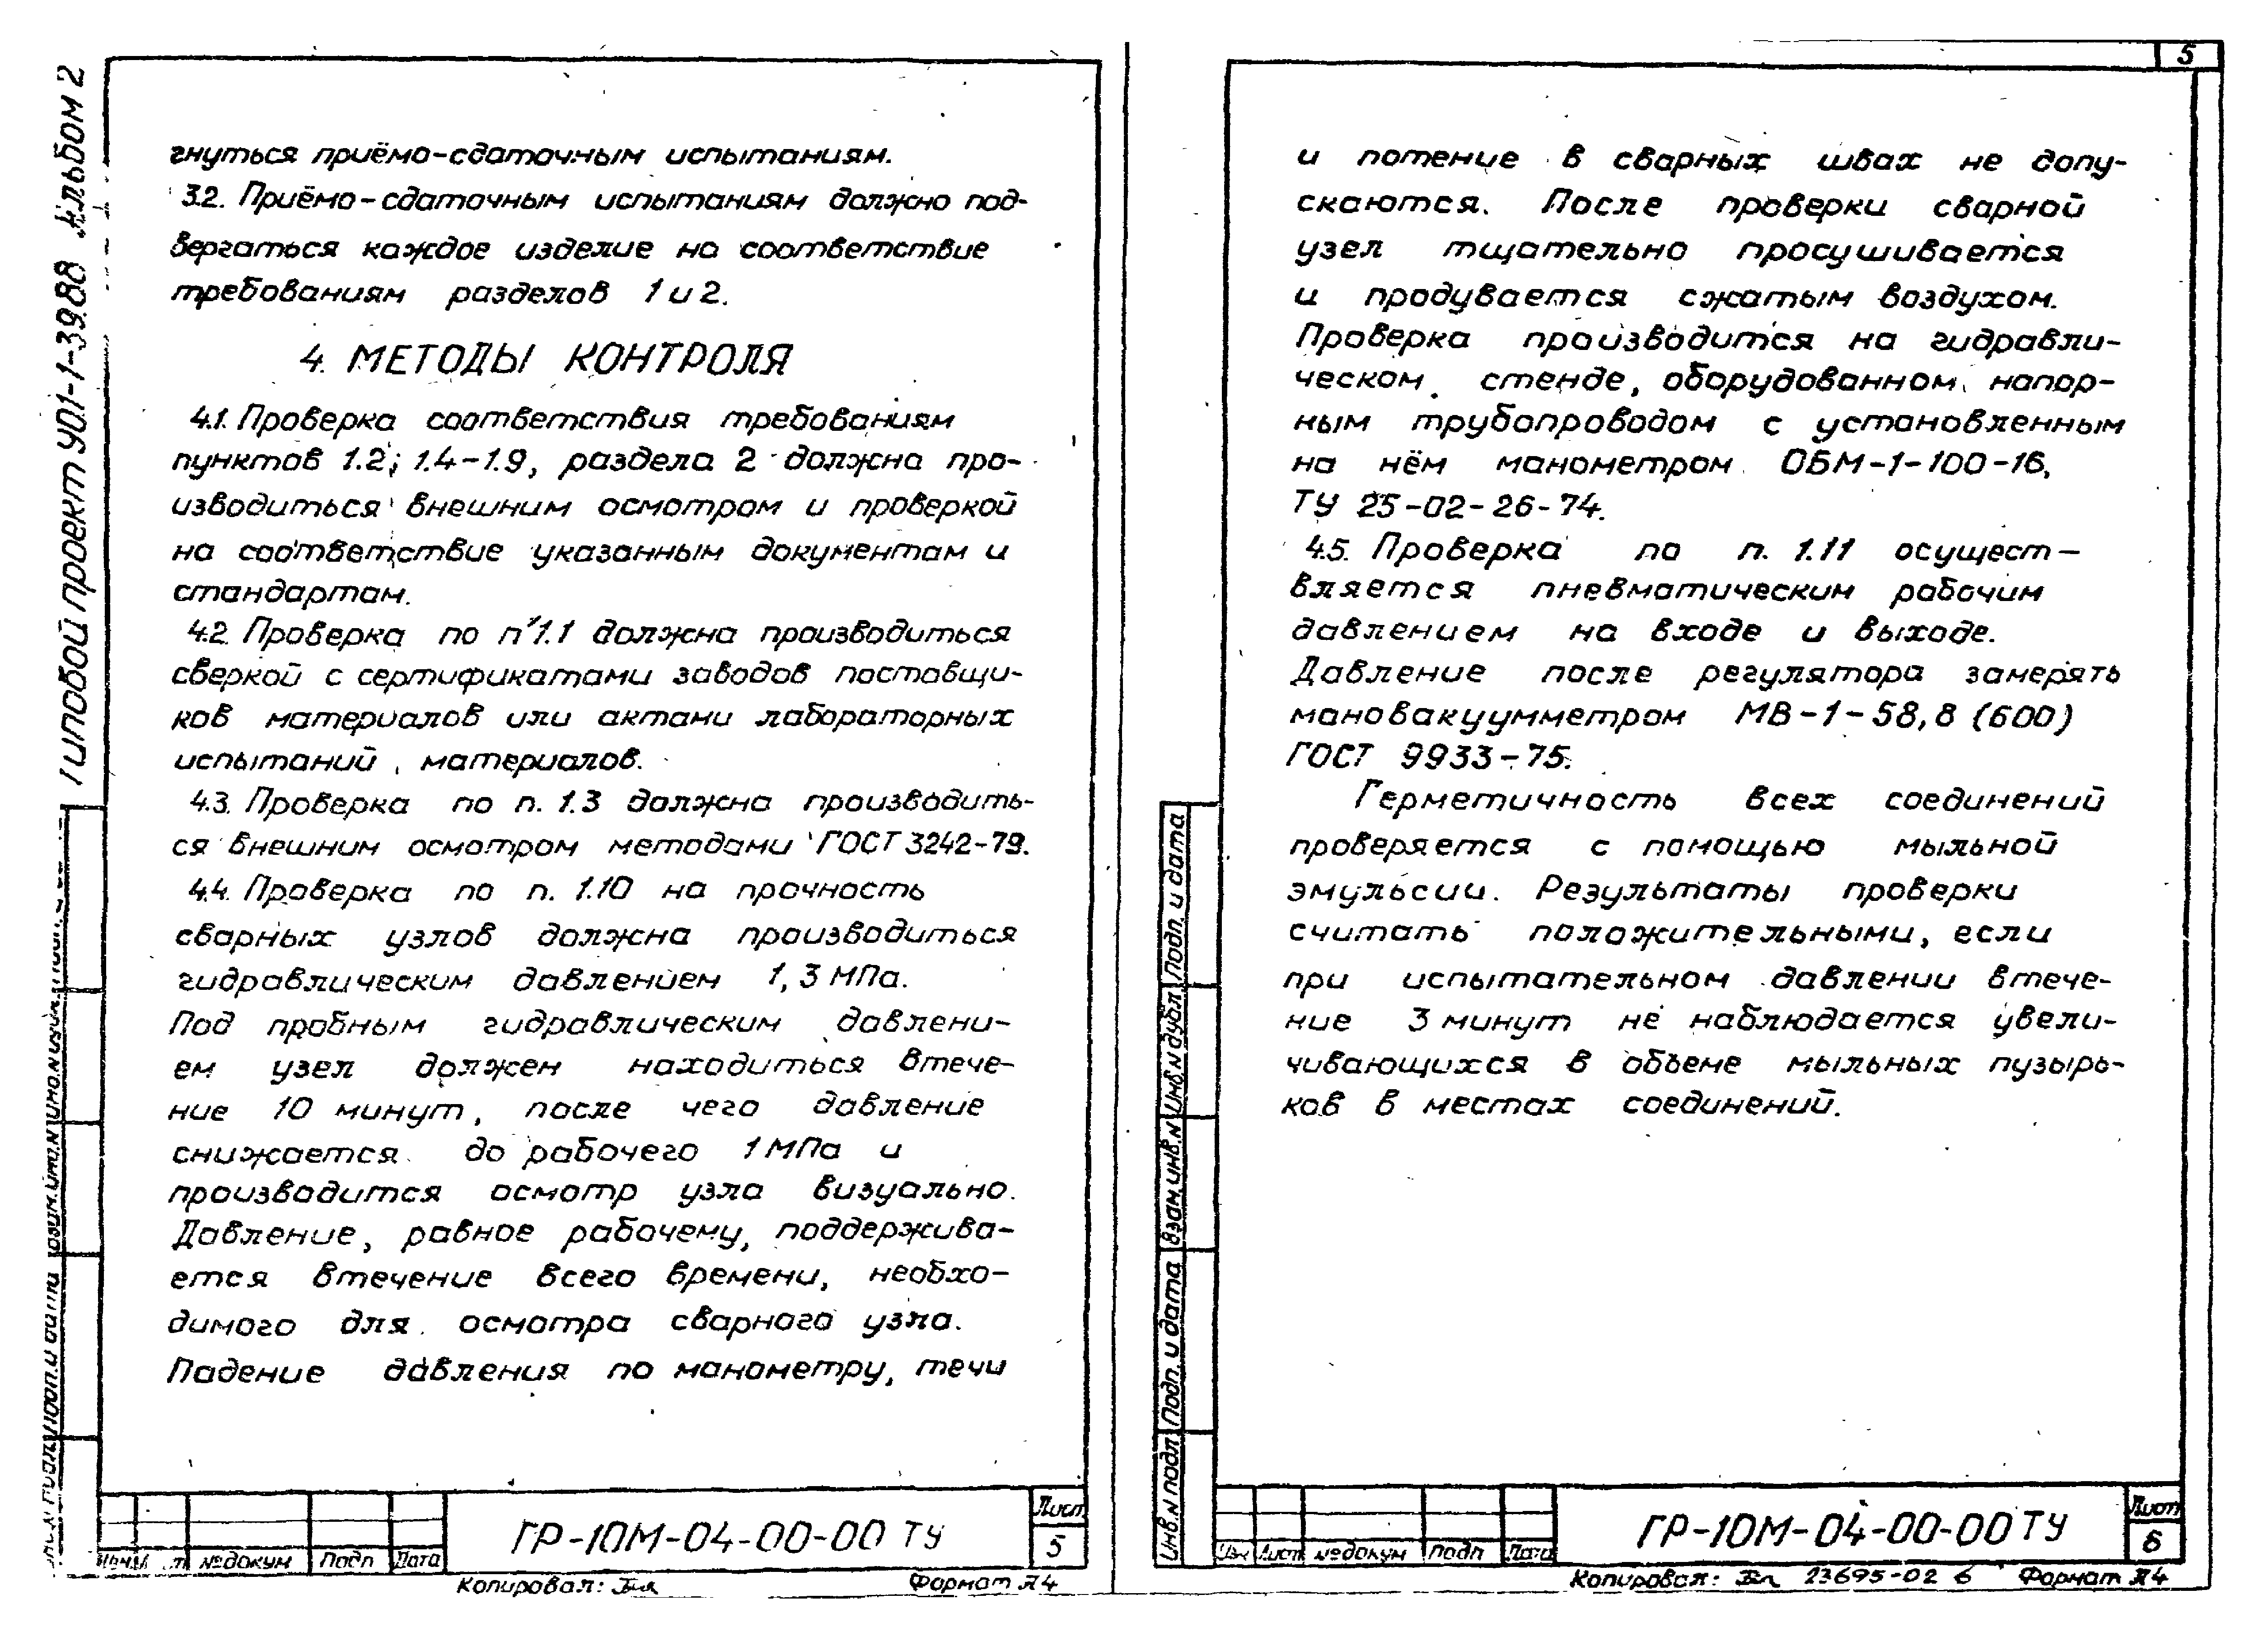 Типовой проект УО1-1-39.88 Альбом 2
гнуться приёмо-сдаточным испытаниям.
3.2. Приёмо-сдаточным испытаниям должно под-
вергаться каждое изделие на соответствие
требованиям разделов 1 и 2.
4. МЕТОДЫ КОНТРОЛЯ
4.1. Проверка соответствия требованиям
пунктов 1.2; 1.4-1.9, раздела 2 должна про-
изводиться внешним осмотром и проверкой
на соответствие указанным документам и
стандартам.
4.2. Проверка по п 1.1 должна производиться
сверкой с сертификатами заводов поставщи-
ков материалов или актами лабораторных
испытаний материалов.
4.3. Проверка по п. 1.3 должна производить-
ся внешним осмотром методами ГОСТ 3242-79.
4.4. Проверка по п. 1.10 на прочность
сварных узлов должна производиться
гидравлическим давлением 1,3 МПа.
Под пробным гидравлическим давлени-
ем узел должен находиться втече-
ние 10 минут, после чего давление
снижается до рабочего 1 МПа и
производится осмотр узла визуально.
Давление, равное рабочему, поддержива-
ется втечение всего времени, необхо-
димого для осмотра сварного узла.
Падение давления по манометру, течи
ГР-10М-04-00-00 ТУ
Лист
5
№ докум Подп Дата
Копировал:
Формат А4
5
и потение в сварных швах не допу-
скаются. После проверки сварной
узел тщательно просушивается
и продувается сжатым воздухом.
Проверка производится на гидравли-
ческом стенде, оборудованном напор-
ным трубопроводом с установленным
на нём манометром ОБМ-1-100-16,
ТУ 25-02-26-74.
4.5. Проверка по п. 1.11 осущест-
вляется пневматическим рабочим
давлением на входе и выходе.
Давление после регулятора замерять
мановакуумметром МВ-1-58,8 (600)
ГОСТ 9933-75.
Герметичность всех соединений
проверяется с помощью мыльной
эмульсии. Результаты проверки
считать положительными, если
при испытательном давлении втече-
ние 3 минут не наблюдается увели-
чивающихся в объеме мыльных пузырь-
ков в местах соединений.
Инв.№ подл Подп. и дата Взам.инв.№ Инв.№ дубл. Подп. и дата
ГР-10М-04-00-00 ТУ
Лист
6
Изм Лист № докум Подп Дата
Копировал: 23695-02 6 Формат А4